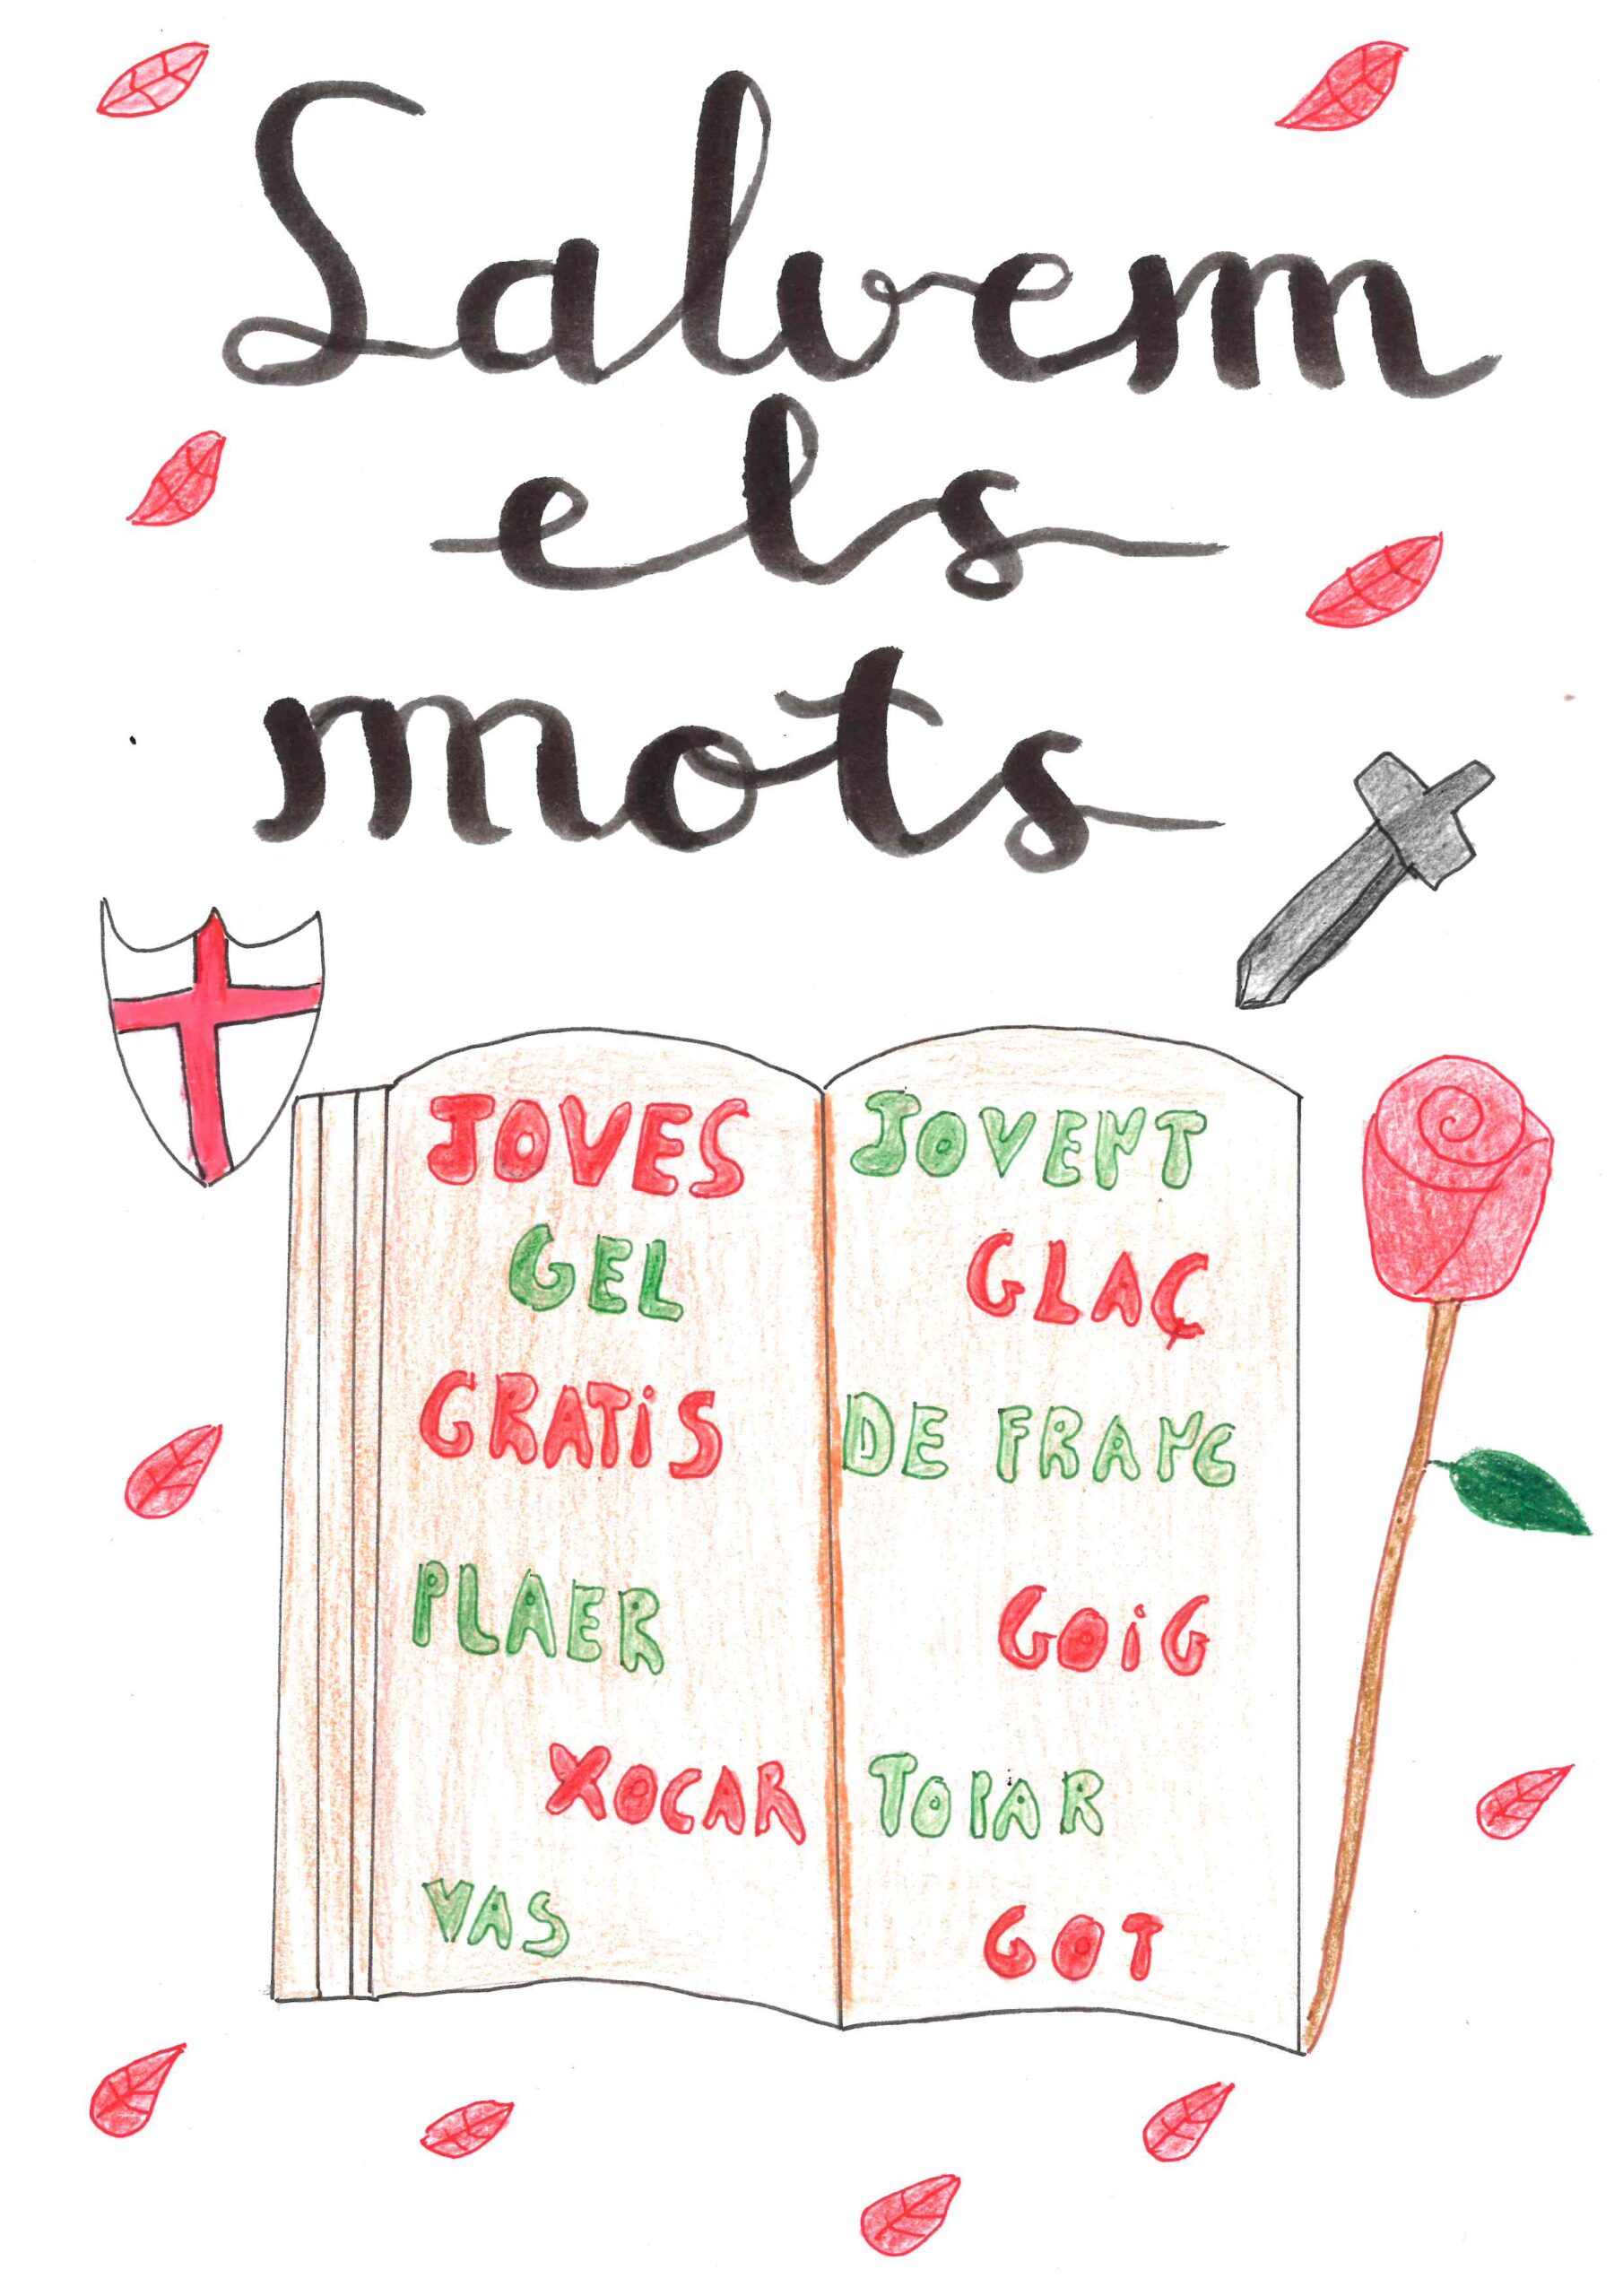 Salvem
els
mots
JOVES JOVENT
GEL GLAÇ
GRATiS DE FRANC
PLAER GOiG
XOCAR TOPAR
VAS GOT